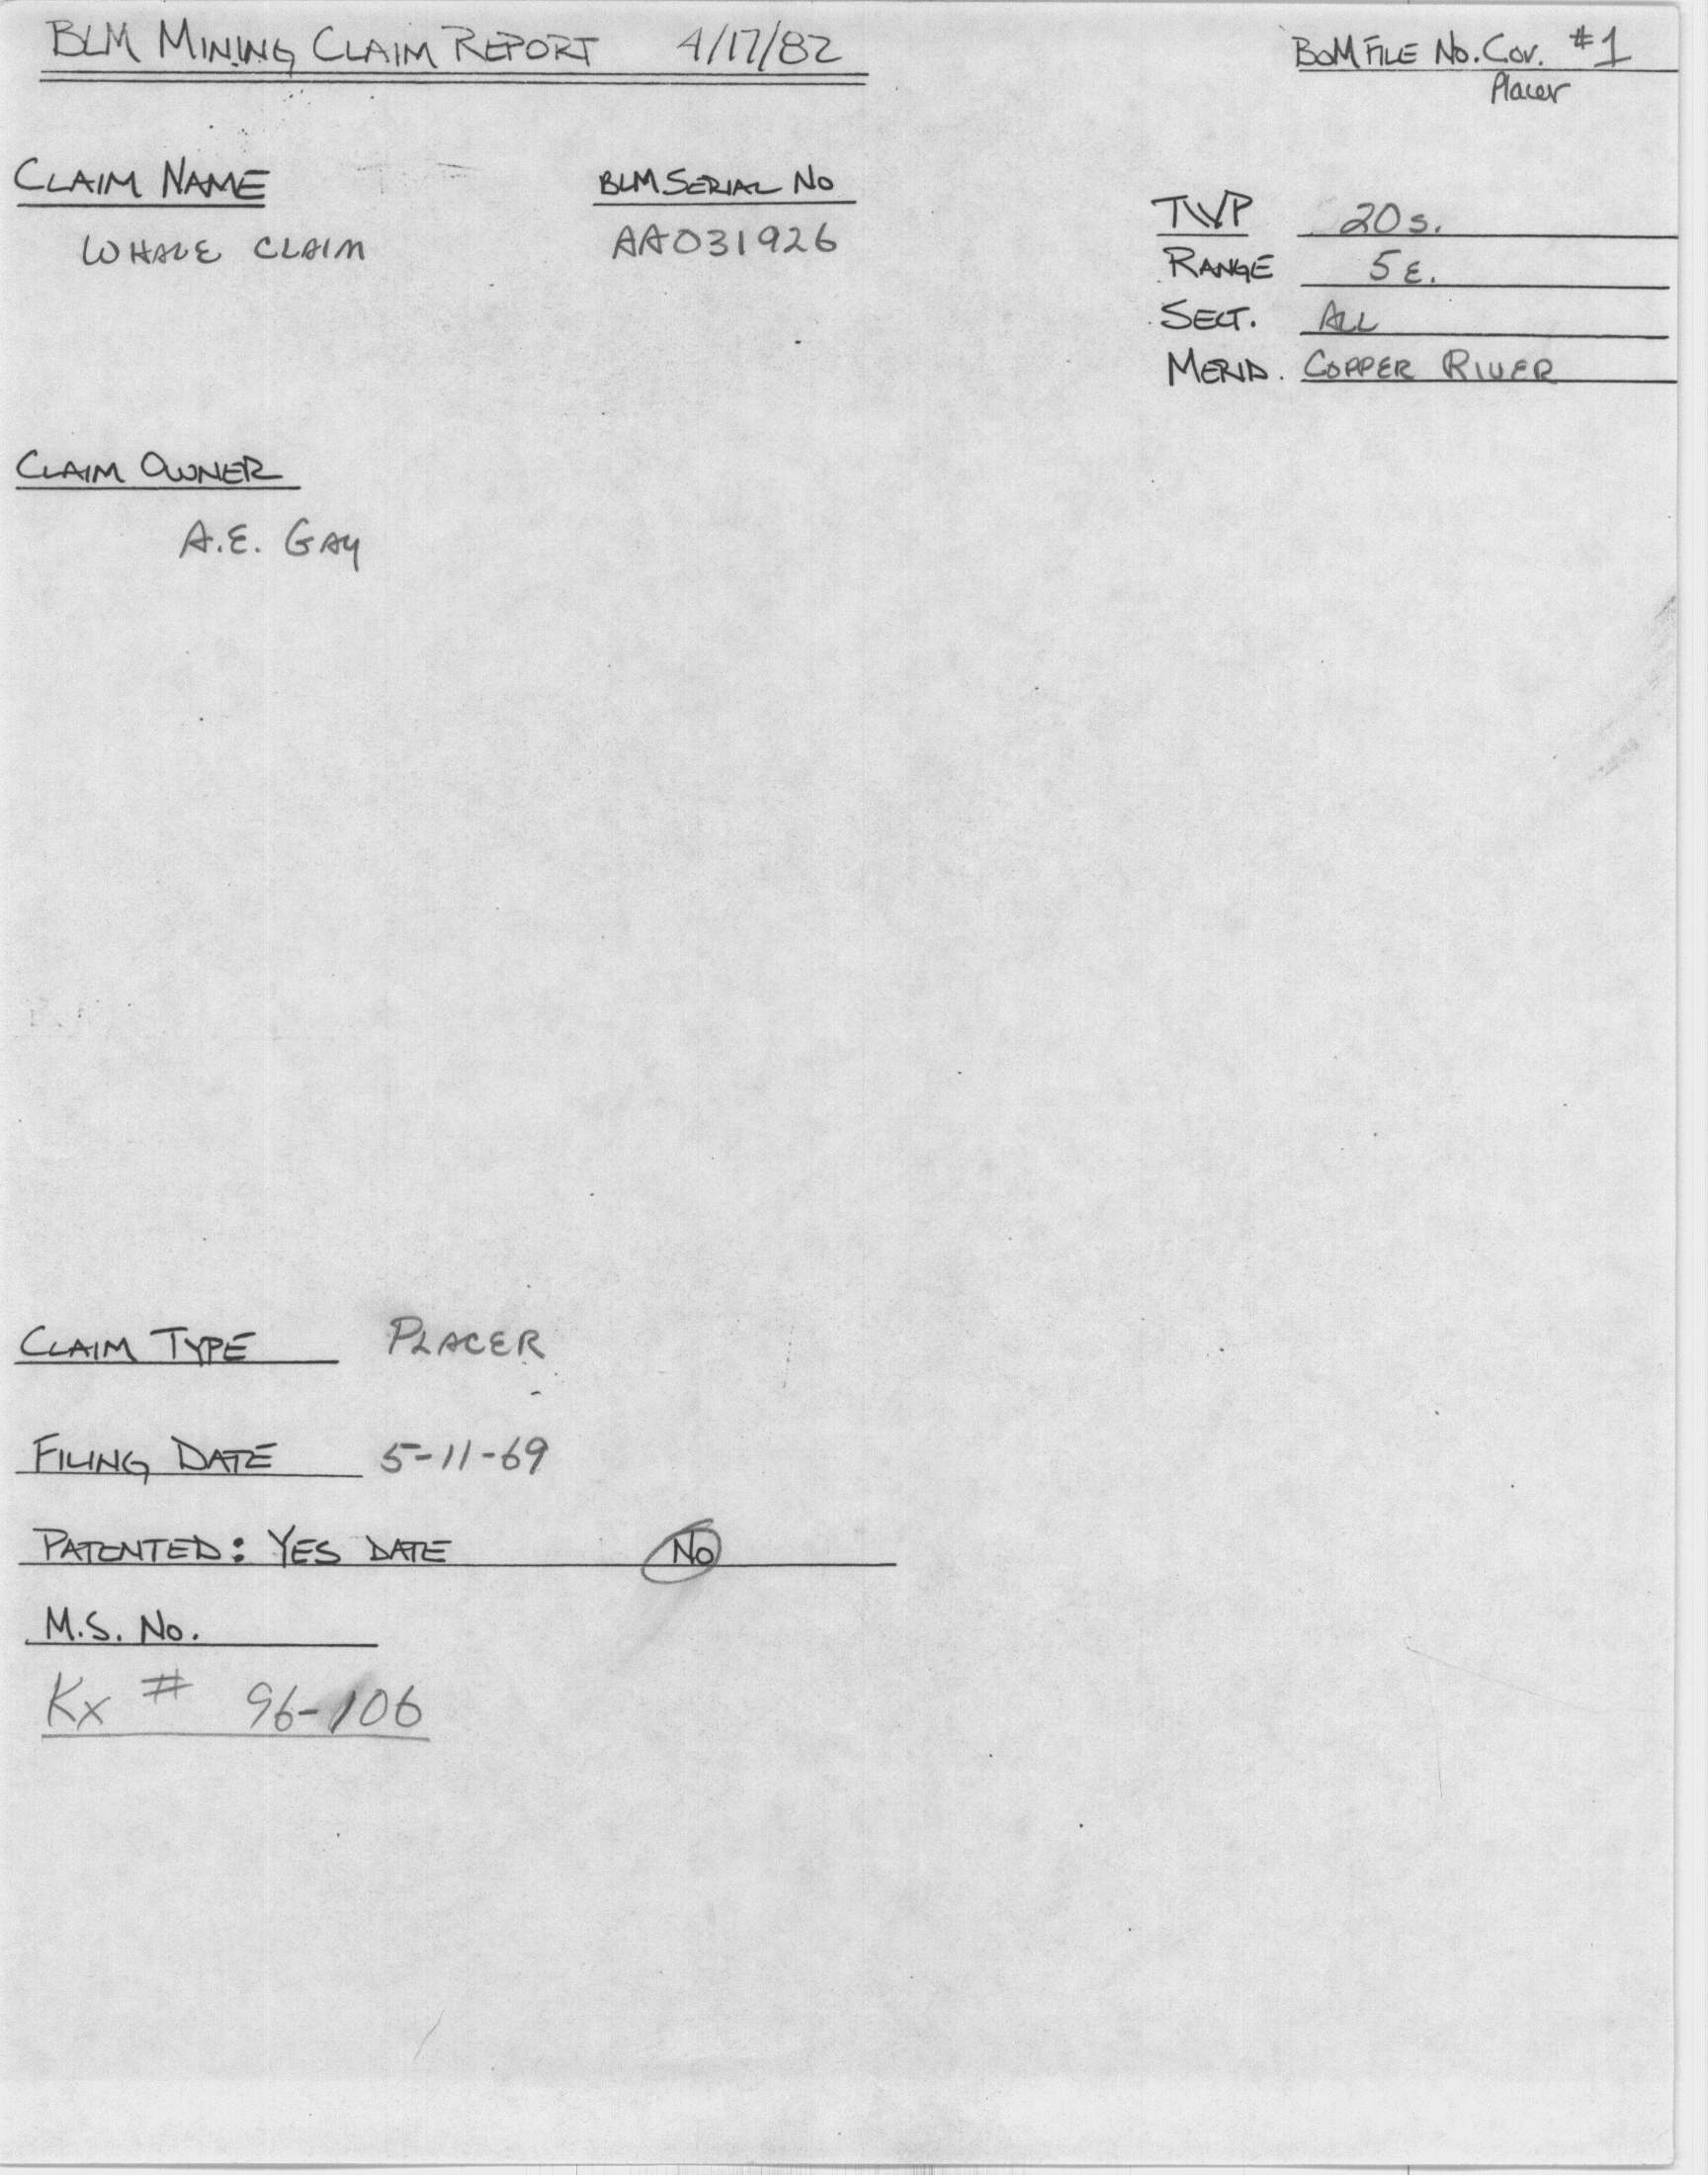 BLM MINING CLAIM REPORT 4/17/82
BOM FILE NO. COV. #1
Placer
CLAIM NAME
BLM SERIAL NO
WHALE CLAIM
AA031926
TWP 20 S.
RANGE 5 E.
SECT. ALL
MERID. COPPER RIVER
CLAIM OWNER
A.E. GAY
CLAIM TYPE PLACER
FILING DATE 5-11-69
PATENTED: YES DATE NO
M.S. NO.
Kx # 96-106